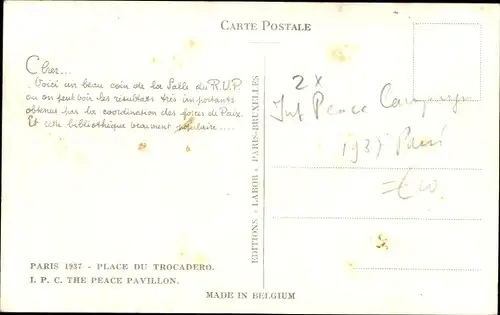 CARTE POSTALE
Cher...
Voici un beau coin de la Salle du R.U.P.
ou on peut voir les résultats très importants
obtenus par la coordination des forces de Paix.
Et cette bibliothèque vraiment populaire....
EDITIONS - LABOR - PARIS-BRUXELLES
2x
Int Peace Campaign
1937 Paris
PARIS 1937 - PLACE DU TROCADERO.
I. P. C. THE PEACE PAVILLON.
MADE IN BELGIUM